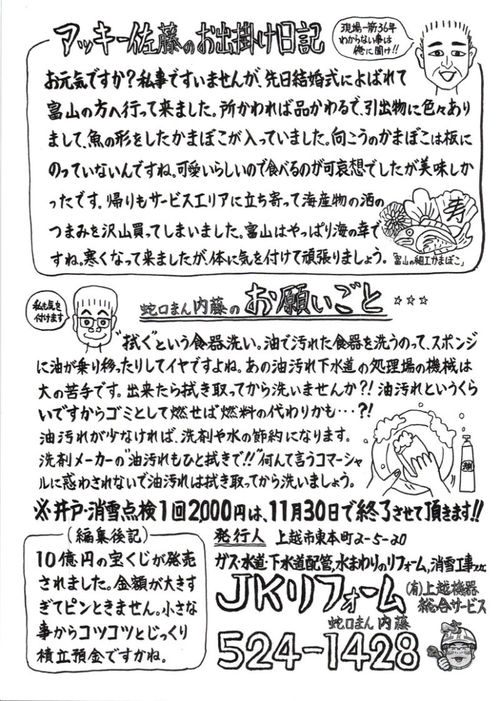 アッキー佐藤のお出掛け日記
現場一筋36年
わからない事は
俺に聞け!!
お元気ですか?私事ですいませんが、先日結婚式によばれて
富山の方へ行って来ました。所かわれば品かわるで、引出物に色々あり
まして、魚の形をしたかまぼこが入っていました。向こうのかまぼこは板に
のっていないんですね。可愛いらしいので食べるのが可哀想でしたが美味しか
ったです。帰りもサービスエリアに立ち寄って海産物の酒の
つまみを沢山買ってしまいました。富山はやっぱり海の幸で
すね。寒くなって来ましたが、体に気を付けて頑張りましょう。
寿
「富山の細工かまぼこ」
私も気を
付けます
蛇口まん内藤の お願いごと ☆☆☆
"拭ぐ"という食器洗い。油で汚れた食器を洗うのって、スポンジ
に油が乗り移ったりしてイヤですよね。あの油汚れ下水道の処理場の機械は
大の苦手です。出来たら拭き取ってから洗いませんか?!油汚れというくら
いですからゴミとして燃せば燃料の代わりかも…?!
油汚れが少なければ、洗剤や水の節約になります。
洗剤メーカーの"油汚れもひと拭きで!!"何んて言うコマーシャ
ルに惑わされないで油汚れは拭き取ってから洗いましょう。
※井戸・消雪点検1回2,000円は、11月30日で終了させて頂きます!!
(編集後記)
10億円の宝くじが発売
されました。金額が大きす
ぎてピンときません。小さな
事からコツコツとじっくり
積立預金ですかね。
発行人 上越市東本町2-5-20
ガス・水道・下水道配管,水まわりのリフォーム,消雪工事etc
JKリフォーム
(有)上越機器
総合サービス
蛇口まん内藤
524-1428